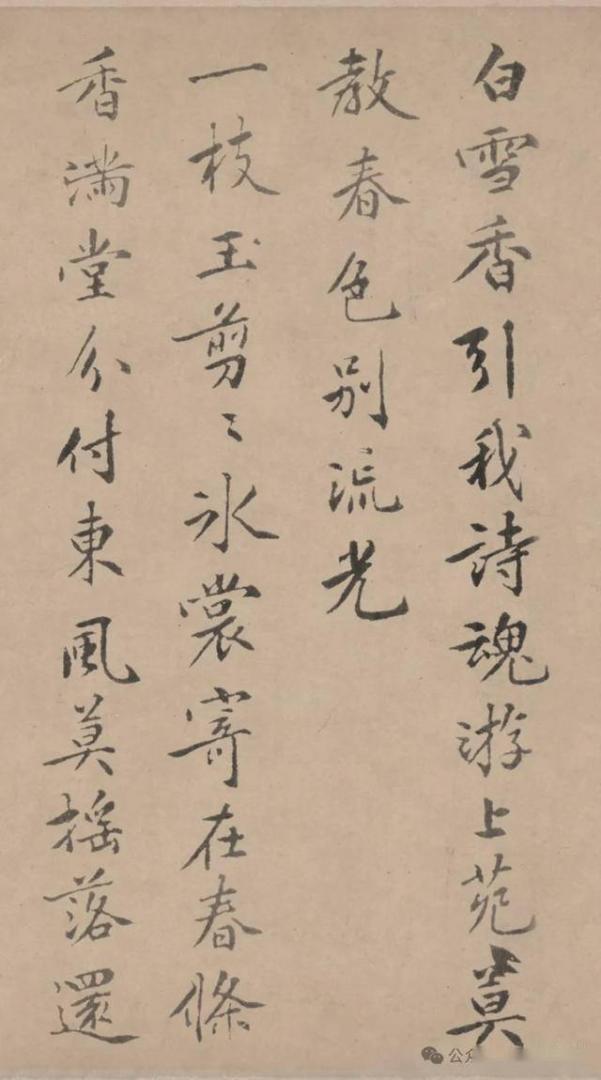 白雪香引我詩魂游上苑莫
教春色別流光
一枝玉剪〻冰裳寄在春條
香滿堂分付東風莫搖落還
公